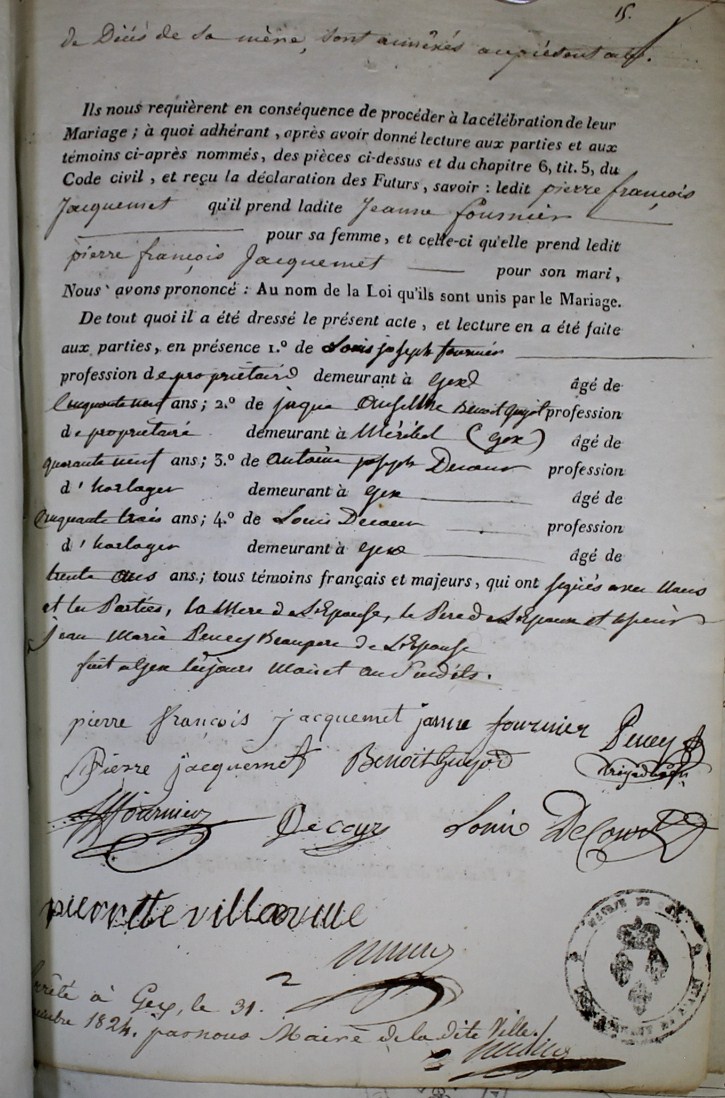 15.
de Décès de sa mère, sont annéxés au présent acte.
Ils nous requièrent en conséquence de procéder à la célébration de leur
Mariage ; à quoi adhérant, après avoir donné lecture aux parties et aux
témoins ci-après nommés, des pièces ci-dessus et du chapitre 6, tit. 5, du
Code civil, et reçu la déclaration des Futurs, savoir : ledit pierre françois
Jacquemet qu'il prend ladite Jeanne fournier
pour sa femme, et celle-ci qu'elle prend ledit
pierre françois Jacquemet pour son mari,
Nous avons prononcé : Au nom de la Loi qu'ils sont unis par le Mariage.
De tout quoi il a été dressé le présent acte, et lecture en a été faite
aux parties, en présence 1.º de Louis joseph fournier
profession de propriétaire demeurant à Gex âgé de
Cinquante neuf ans ; 2.º de jaque Benoit Guyot profession
de propriétaire demeurant à (Gex) âgé de
quarante neuf ans ; 3.º de antoine joseph profession
d'horloger demeurant à Gex âgé de
Cinquante trois ans ; 4.º de Louis profession
d'horloger demeurant à Gex âgé de
trente ans ; tous témoins français et majeurs, qui ont signés avec Nous
et les Parties, la Mere de L'Epouse, le Pere de L'Epoux et
jean Marie Pency Beaupere de L'Epouse
fait a Gex les jours Mois et an Susdits.
pierre françois jacquemet janne fournier Pency
Pierre jacquemet Benoit Guyot
fournier Louis
Gex, le 31.
1824. par nous Maire de la dite Ville.